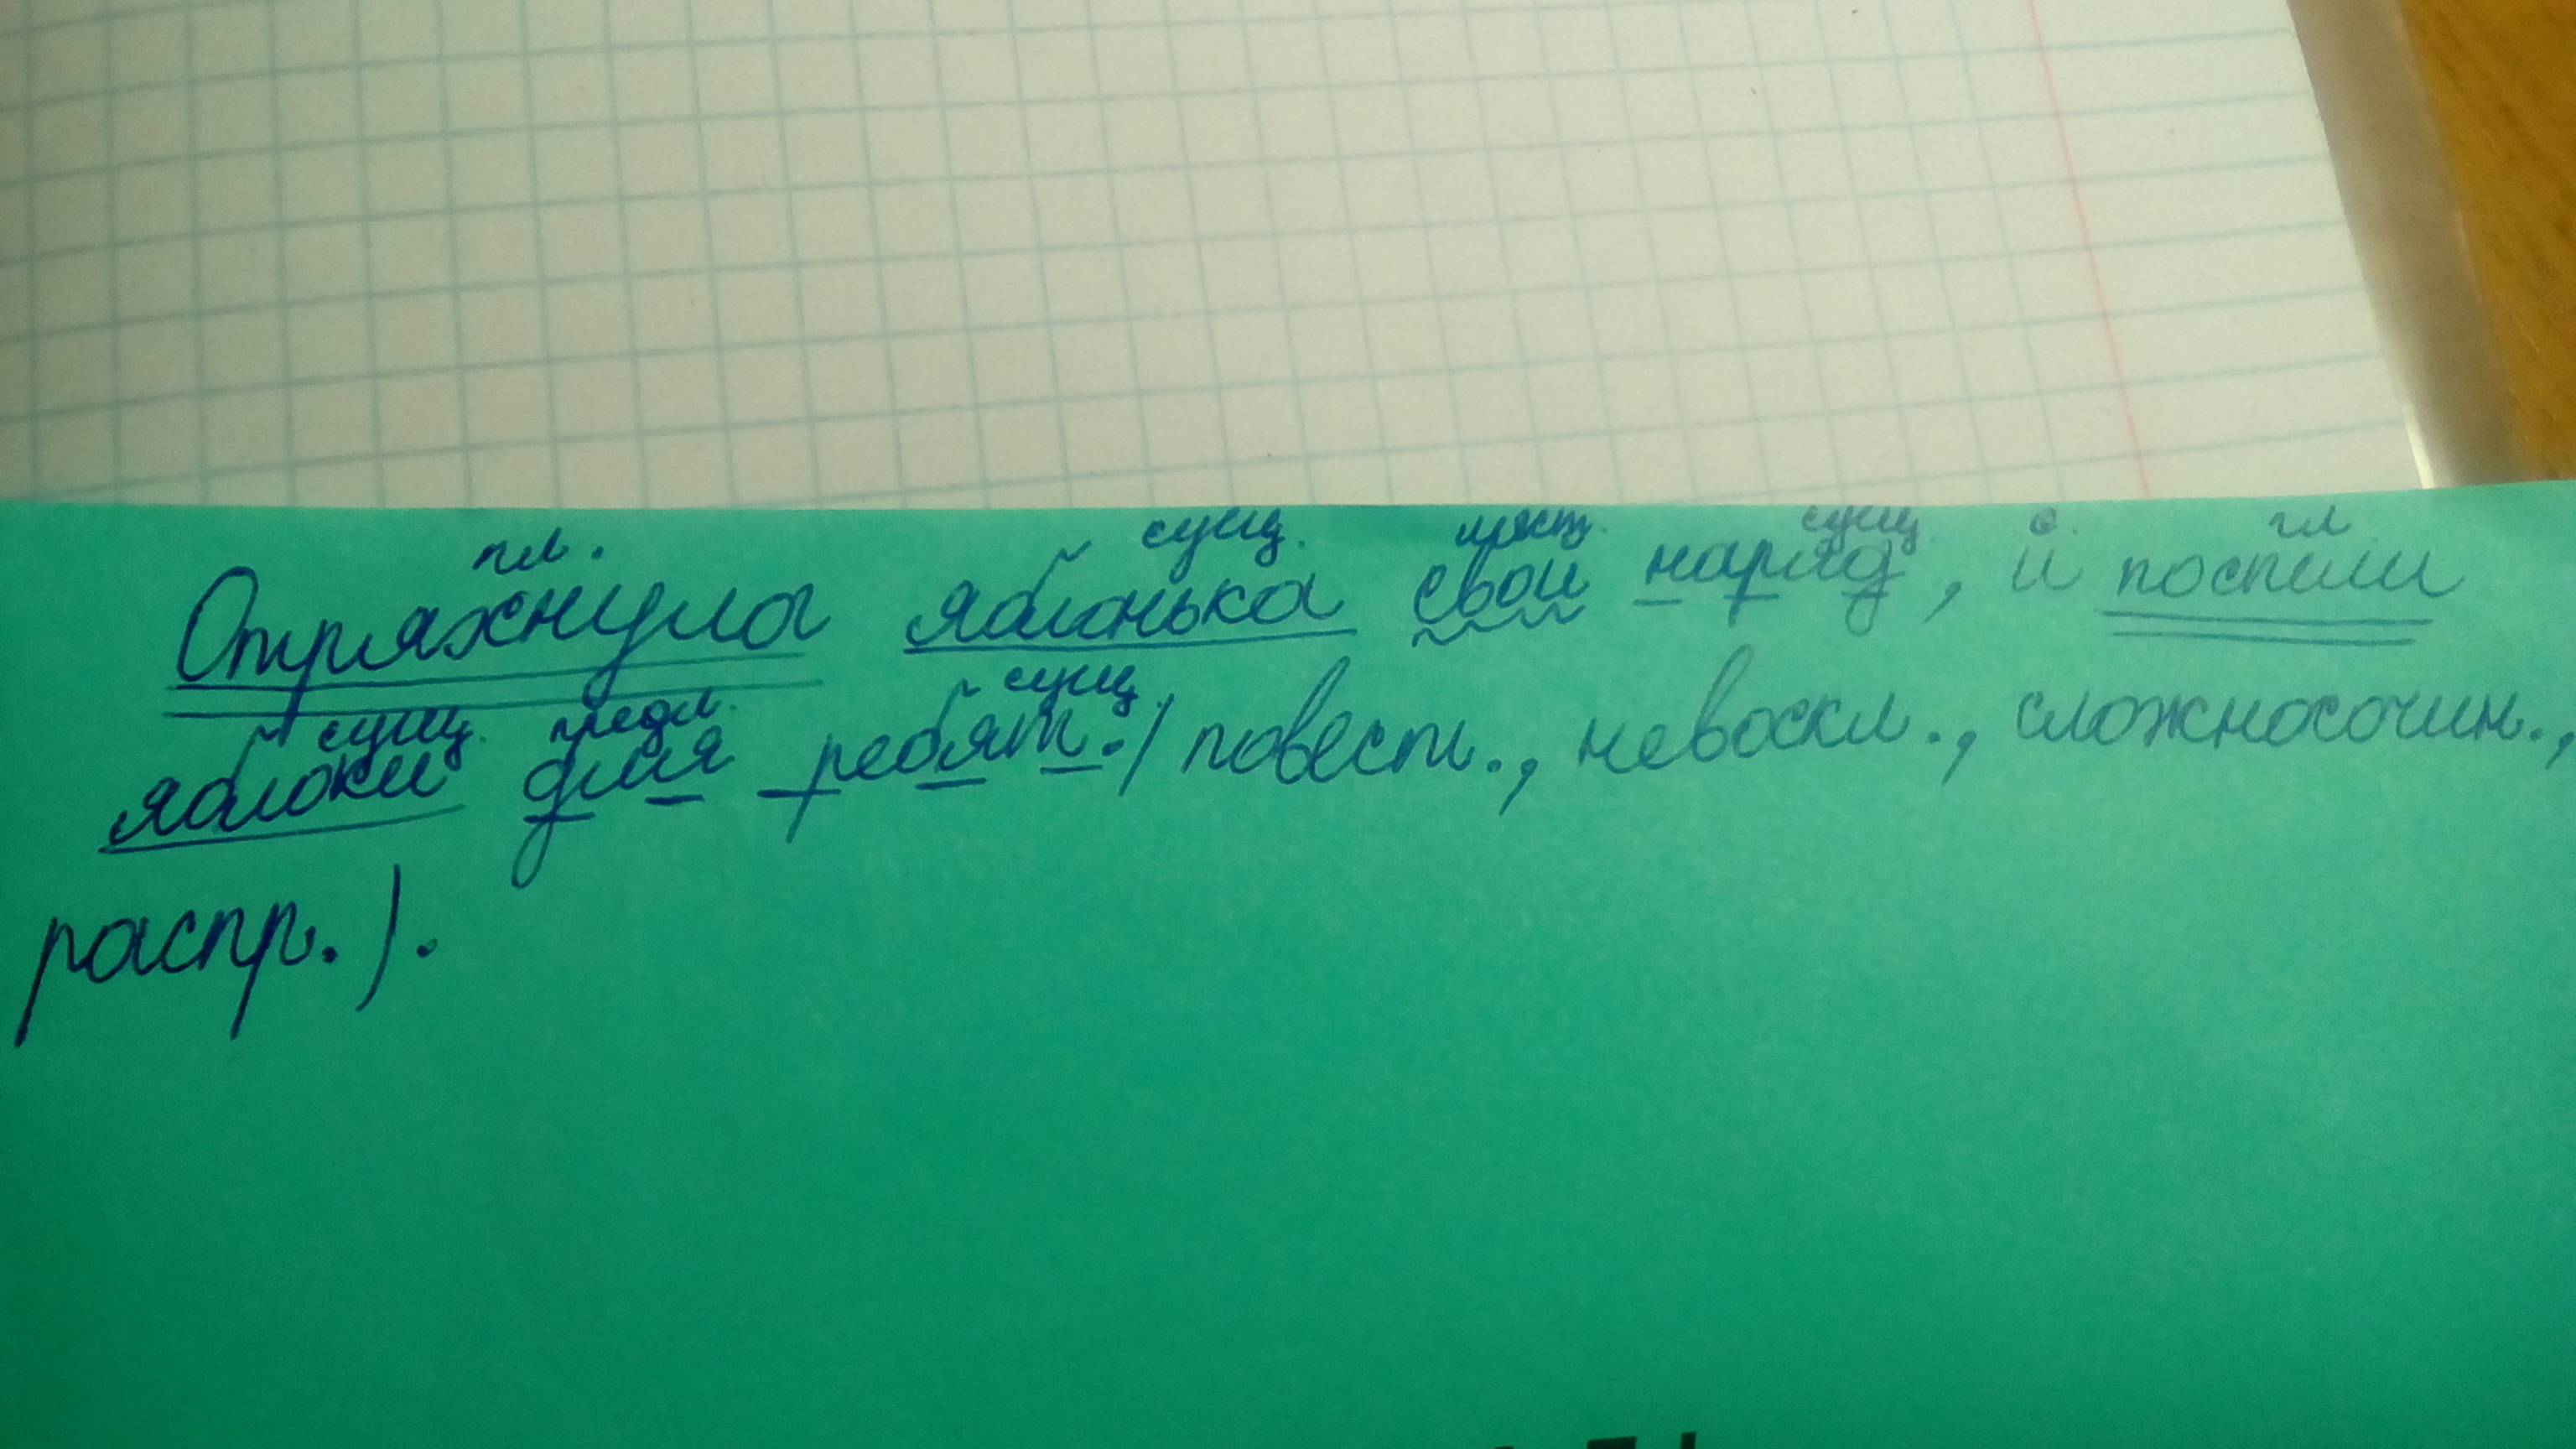 гл. сущ. мест. сущ. с. гл.
Отряхнула яблонька свой наряд, и поспели
сущ. предл. сущ.
яблоки для ребят. (повест., невоскл., сложносочин.,
распр.).